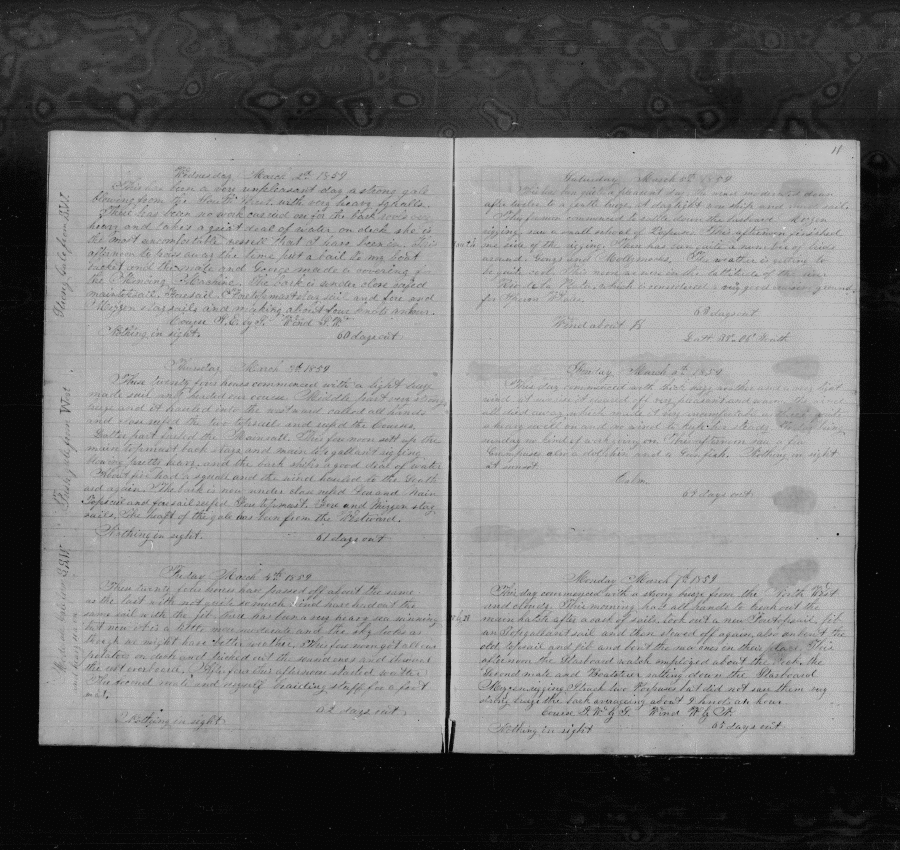 Wednesday March 2d 1859
There has been a very unpleasant day a strong gale
blowing from the South West with very heavy squalls.
There has been no work carried on for the bark rools very
heavy and takes a great deal of water on deck she is
the most uncomfortable vessell that I have been in. This
afternoon to pass away the time put a bail to my boat
bucket and the mate and George made a covering for
the Mincing Machine. The bark is under close reefed
maintopsail, Foresail, Foretopmast staysail and fore and
Mizzen staysails and making about four knots an hour.
Course N.E. by E. Wind S.W.
Nothing in sight. 60 days out
Strong gale from S.W.
Thursday March 3d 1859
These twenty four hours commenced with a light breeze
made sail and started on our course. Middle part very strong
breeze and it hauled into the westward called all hands
and close reefed the two topsails and reefed the
Latter part furled the Mainsail. This forenoon sett up the
main topmast back stays and main to'gallant rigging
blowing pretty heavy and the bark ships a good deal of water
had a squall and the wind hauled to the South
ard again. The bark is now under close reefed Fore and Main
Topsail and foresail reefed Foretopmast. Fore and Mizzen stay
sails. The heaft of the gale has been from the Westward.
Nothing in sight. 61 days out
Fresh gale from West
Friday March 4th 1859
These twenty four hours have passed off about the same
as the last with not quite so much wind have had out the
same sail with the jib. There has been a very heavy sea running
but now it is a little more moderate and the sky looks as
though we might have better weather. This forenoon got all our
potatoes on deck and picked out the sound ones and throwed
the rest overboard. After
The second mate and myself braiding stuff for a paint
mat.
Nothing in sight 62 days out
and heavy sea on
11
Saturday March 5th 1859
This has been quite a pleasant day the wind moderated down
after twelve to a gentle breeze, at daylight on ship and small sail.
This forenoon commenced to rattle down the larboard Mizzen
rigging, saw a small school of Porpoise. This afternoon finished
one side of the rigging. There has been quite a number of birds
around, Goneys and Mollymokes. The weather is getting to
be quite cool. This noon as are in the lattitude of the river
Rio de la Plata which is considered a very good cruising ground
for Sperm Whale.
63 days out
Wind about N
Latt South
Sunday March 6th 1859
This day commenced with and a very light
wind at sunrise it cleared off very pleasant and warm the wind
all died away which made it very uncomfortable
a heavy swell on and no wind to keep her steady
sunday no kind of work going on. This afternoon saw a few
Grampuses also a dolphin and a Sun fish. Nothing in sight
at sunset.
Calm
64 days out
Monday March 7th 1859
This day commenced with a strong breeze from the North West
and cloudy. This morning had all hands to break out the
main hatch after a cask of sails, took out a new Foretopsail, jib
an Foretogallantsail and then stowed off again, also unbent the
old topsail and jib and bent the new ones in their place. This
afternoon the Starboard watch employed about the deck, the
second mate and Boatsteerer ratling down the Starboard
Mizzen rigging. Struck two Porpoises but did not save them very
strong breeze the bark averageing about 9 knots an hour
Course S.W. by S. Wind W by N.
Nothing in sight 65 days out